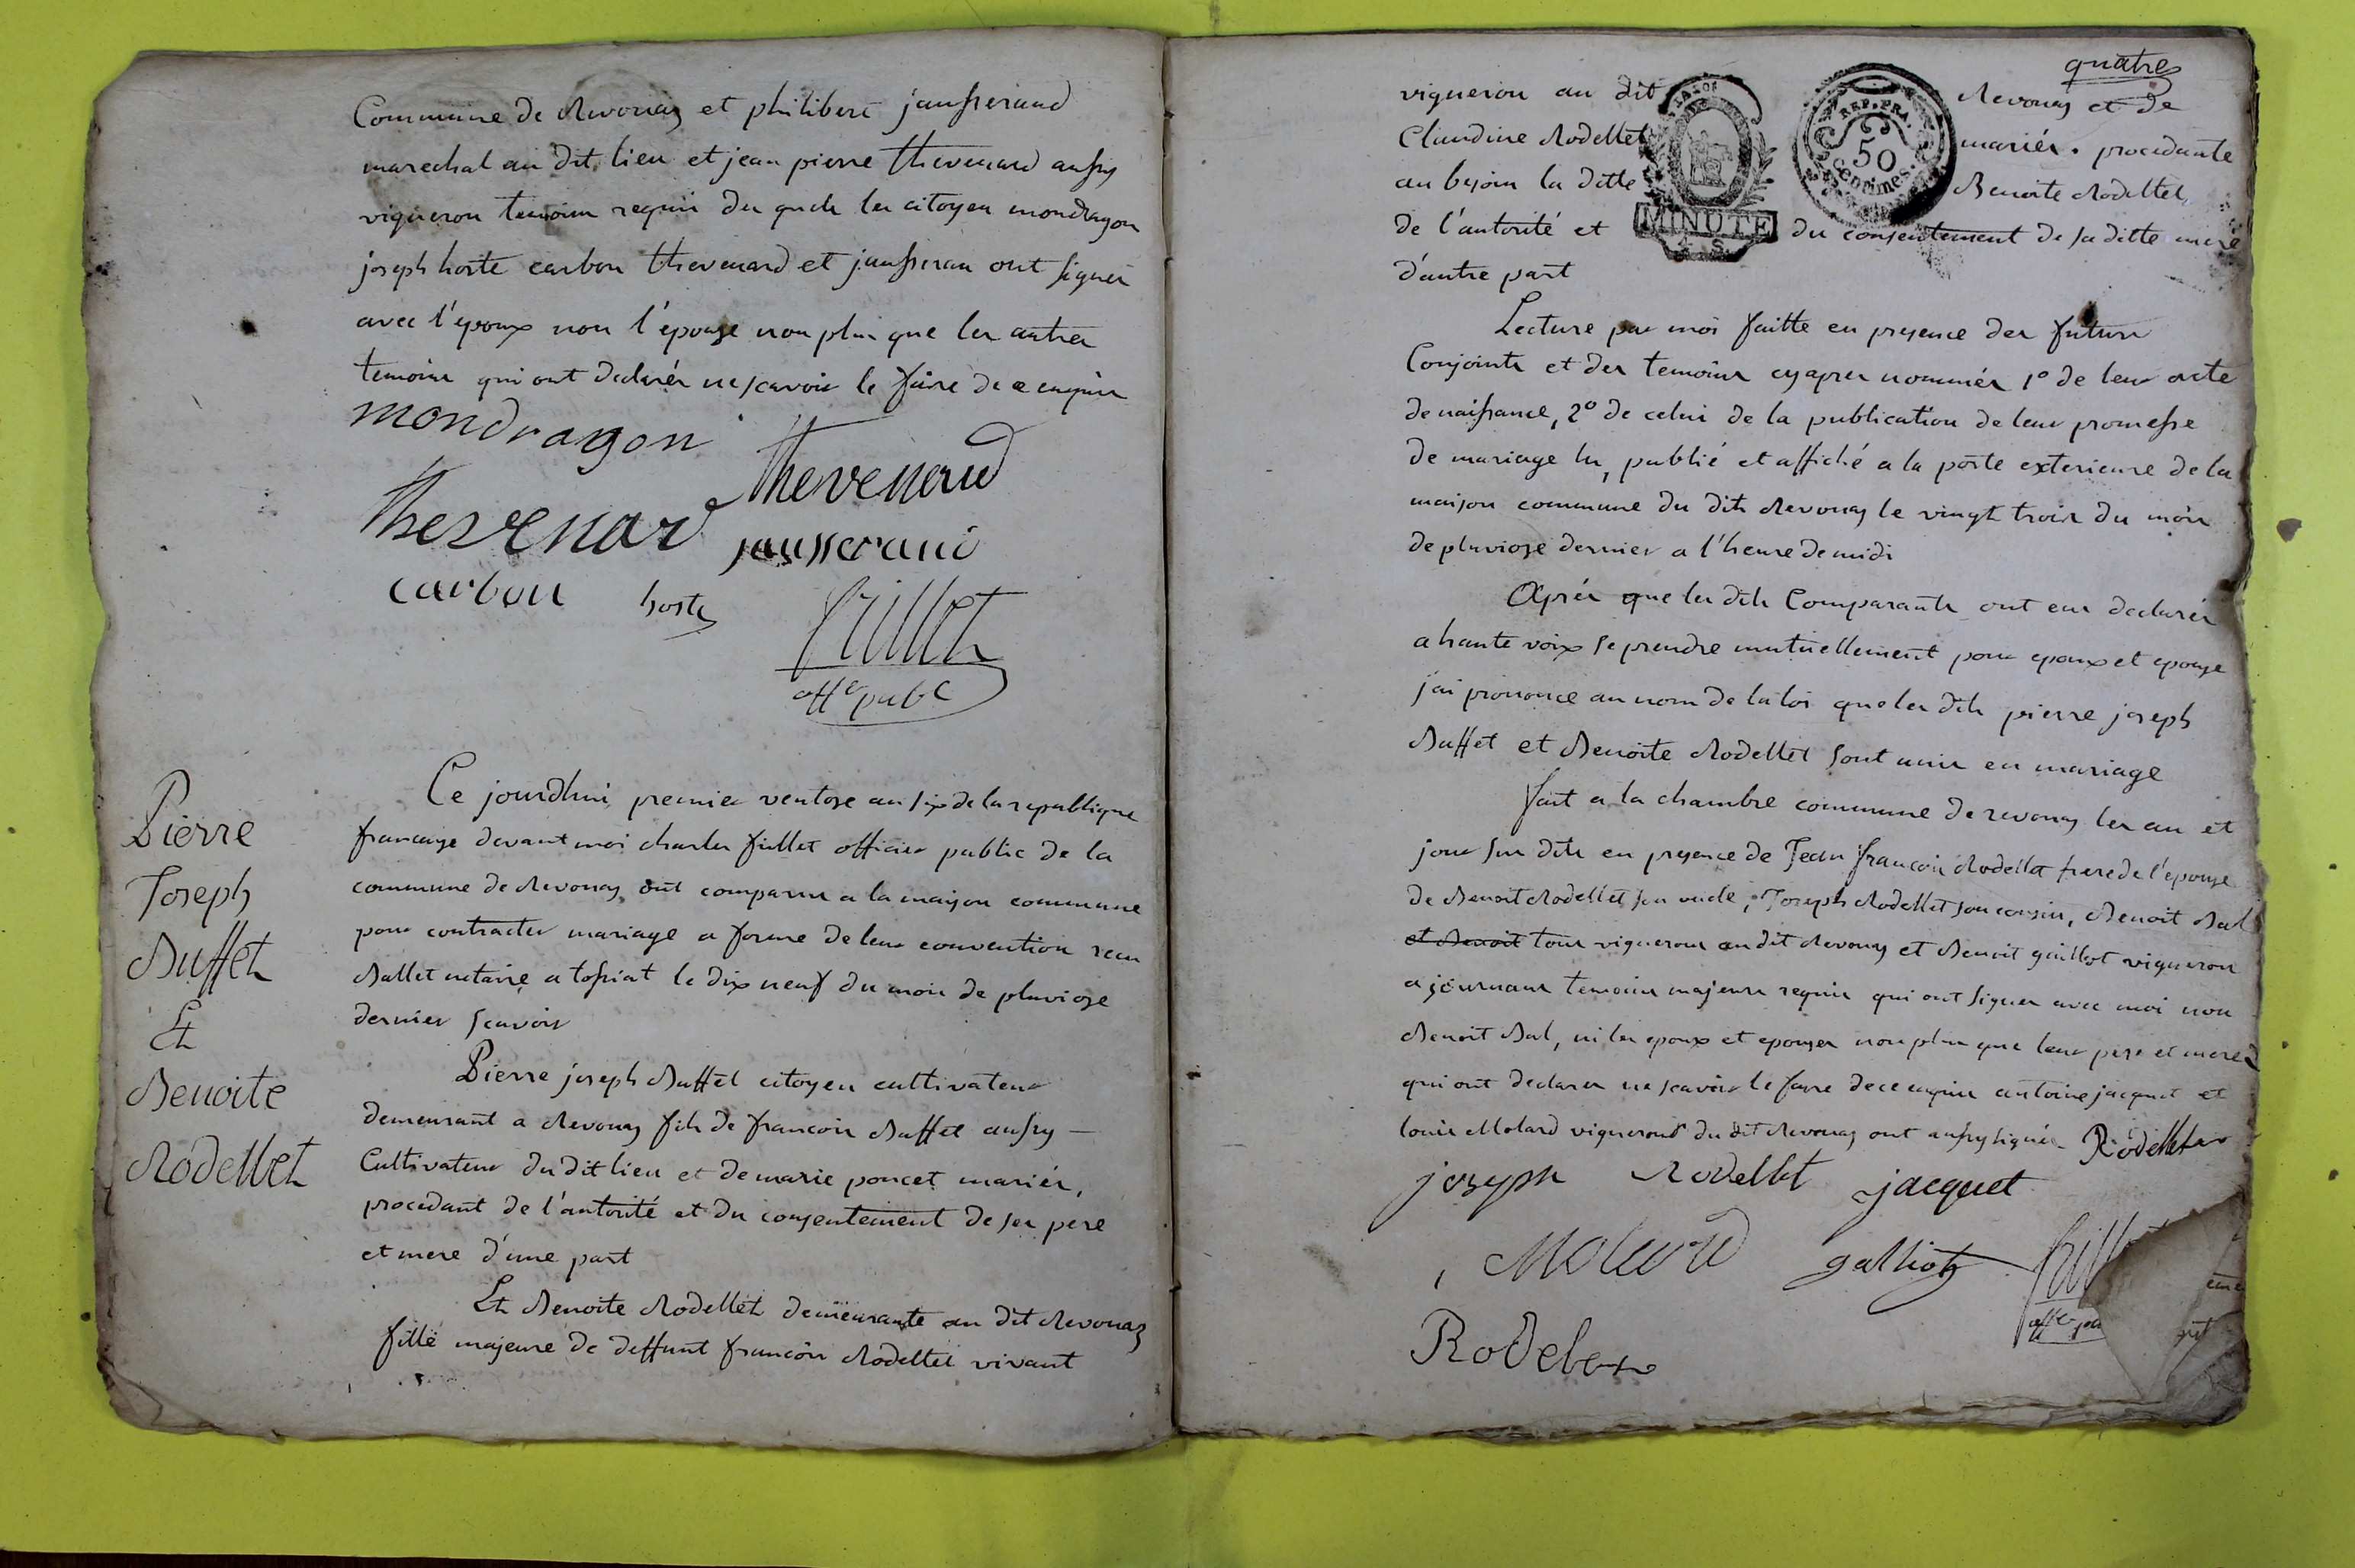 Commune de Revonas et philibert jausserand
marechal au dit lieu et jean pierre thevenard aussy
vigneron temoins requis du quels les citoyen mondragon
joseph hoste carbon thevenard et jausseran ont signés
avec l'epoux non l'epouse non plus que les autres
temoins qui ont declarés ne scavoir le faire de ce enquis
mondragon
thevenard
thevenard
jausserand
carbon hoste
fillet
offer pubc
Pierre
Joseph
Buffet
Et
Benoite
Rodellet
Ce jourdhui premier ventose an six de la republique
francaise devant moi charles fillet officier public de la
commune de Revonas ont comparus a la maison commune
pour contracter mariage a forme de leur convention recu
Ballet notaire a tossiat le dix neuf du mois de pluviose
dernier scavoir
Pierre joseph Buffet citoyen cultivateur
demeurant a Revonas fils de francois Buffet aussy
Cultivateur du dit lieu et de marie poncet mariés,
procedant de l'autorité et du consentement de ses pere
et mere d'une part
Et Benoite Rodellet demeurante au dit Revonas
fille majeure de deffunt francois Rodellet vivant
quatre
vigneron au dit Revonas et de
Claudine Rodellet mariés. procedante
au besoin la ditte Benoite Rodellet
de l'autorité et du consentement de sa ditte mere
REP. FRA.
50
Centimes.
MINUTE
d'autre part
Lecture par moi faitte en presence des futurs
Conjoints et des temoins cyapres nommés 1° de leur acte
de naissance, 2° de celui de la publication de leur promesse
de mariage lu, publié et affiché a la porte exterieure de la
maison commune du dit Revonas le vingt trois du mois
de pluviose dernier a l'heure de midi
Après que les dits Comparants ont eu declarés
a haute voix se prendre mutuellement pour epoux et epouse
j'ai prononcé au nom de la loi que les dits pierre joseph
Buffet et Benoite Rodellet sont unis en mariage
fait a la chambre commune de revonas les an et
jour sus dits en presence de Jean francois Rodellet frere de l'epouse
de Benoit Rodellet son oncle, Joseph Rodellet son cousin, Benoit Bal
et Benoit tous vignerons au dit Revonas et Benoit guillot vigneron
a journans temoins majeurs requis qui ont signes avec moi non
Benoit Bal, ni les epoux et epouses non plus que leur pere et meres
qui ont declares ne scavoir le faire de ce enquis antoine jacquet et
louis Molard vignerons du dit Revonas ont aussy signés Rodellet
joseph Rodellet jacquet
Molard galliot
Rodelet